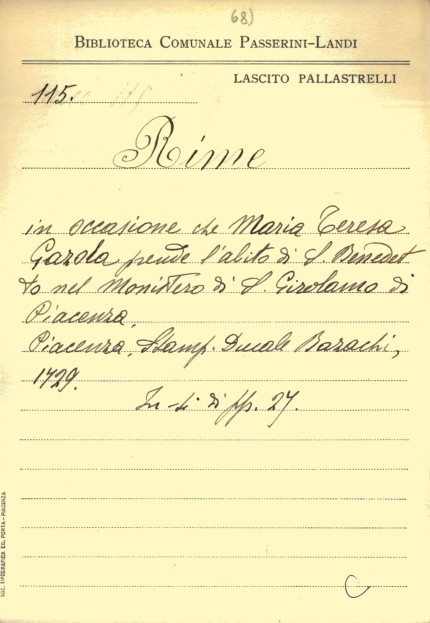 68)
BIBLIOTECA COMUNALE PASSERINI-LANDI
LASCITO PALLASTRELLI
115.
Rime
in occasione che Maria Teresa
Gazola prende l'abito di S. Benedet
to nel Monistero di S. Girolamo di
Piacenza.
Piacenza, Stamp. Ducale Bazachi,
1729.
In-4 di pp. 27.
SOC. TIPOGRAFICA ED. PORTA - PIACENZA
C